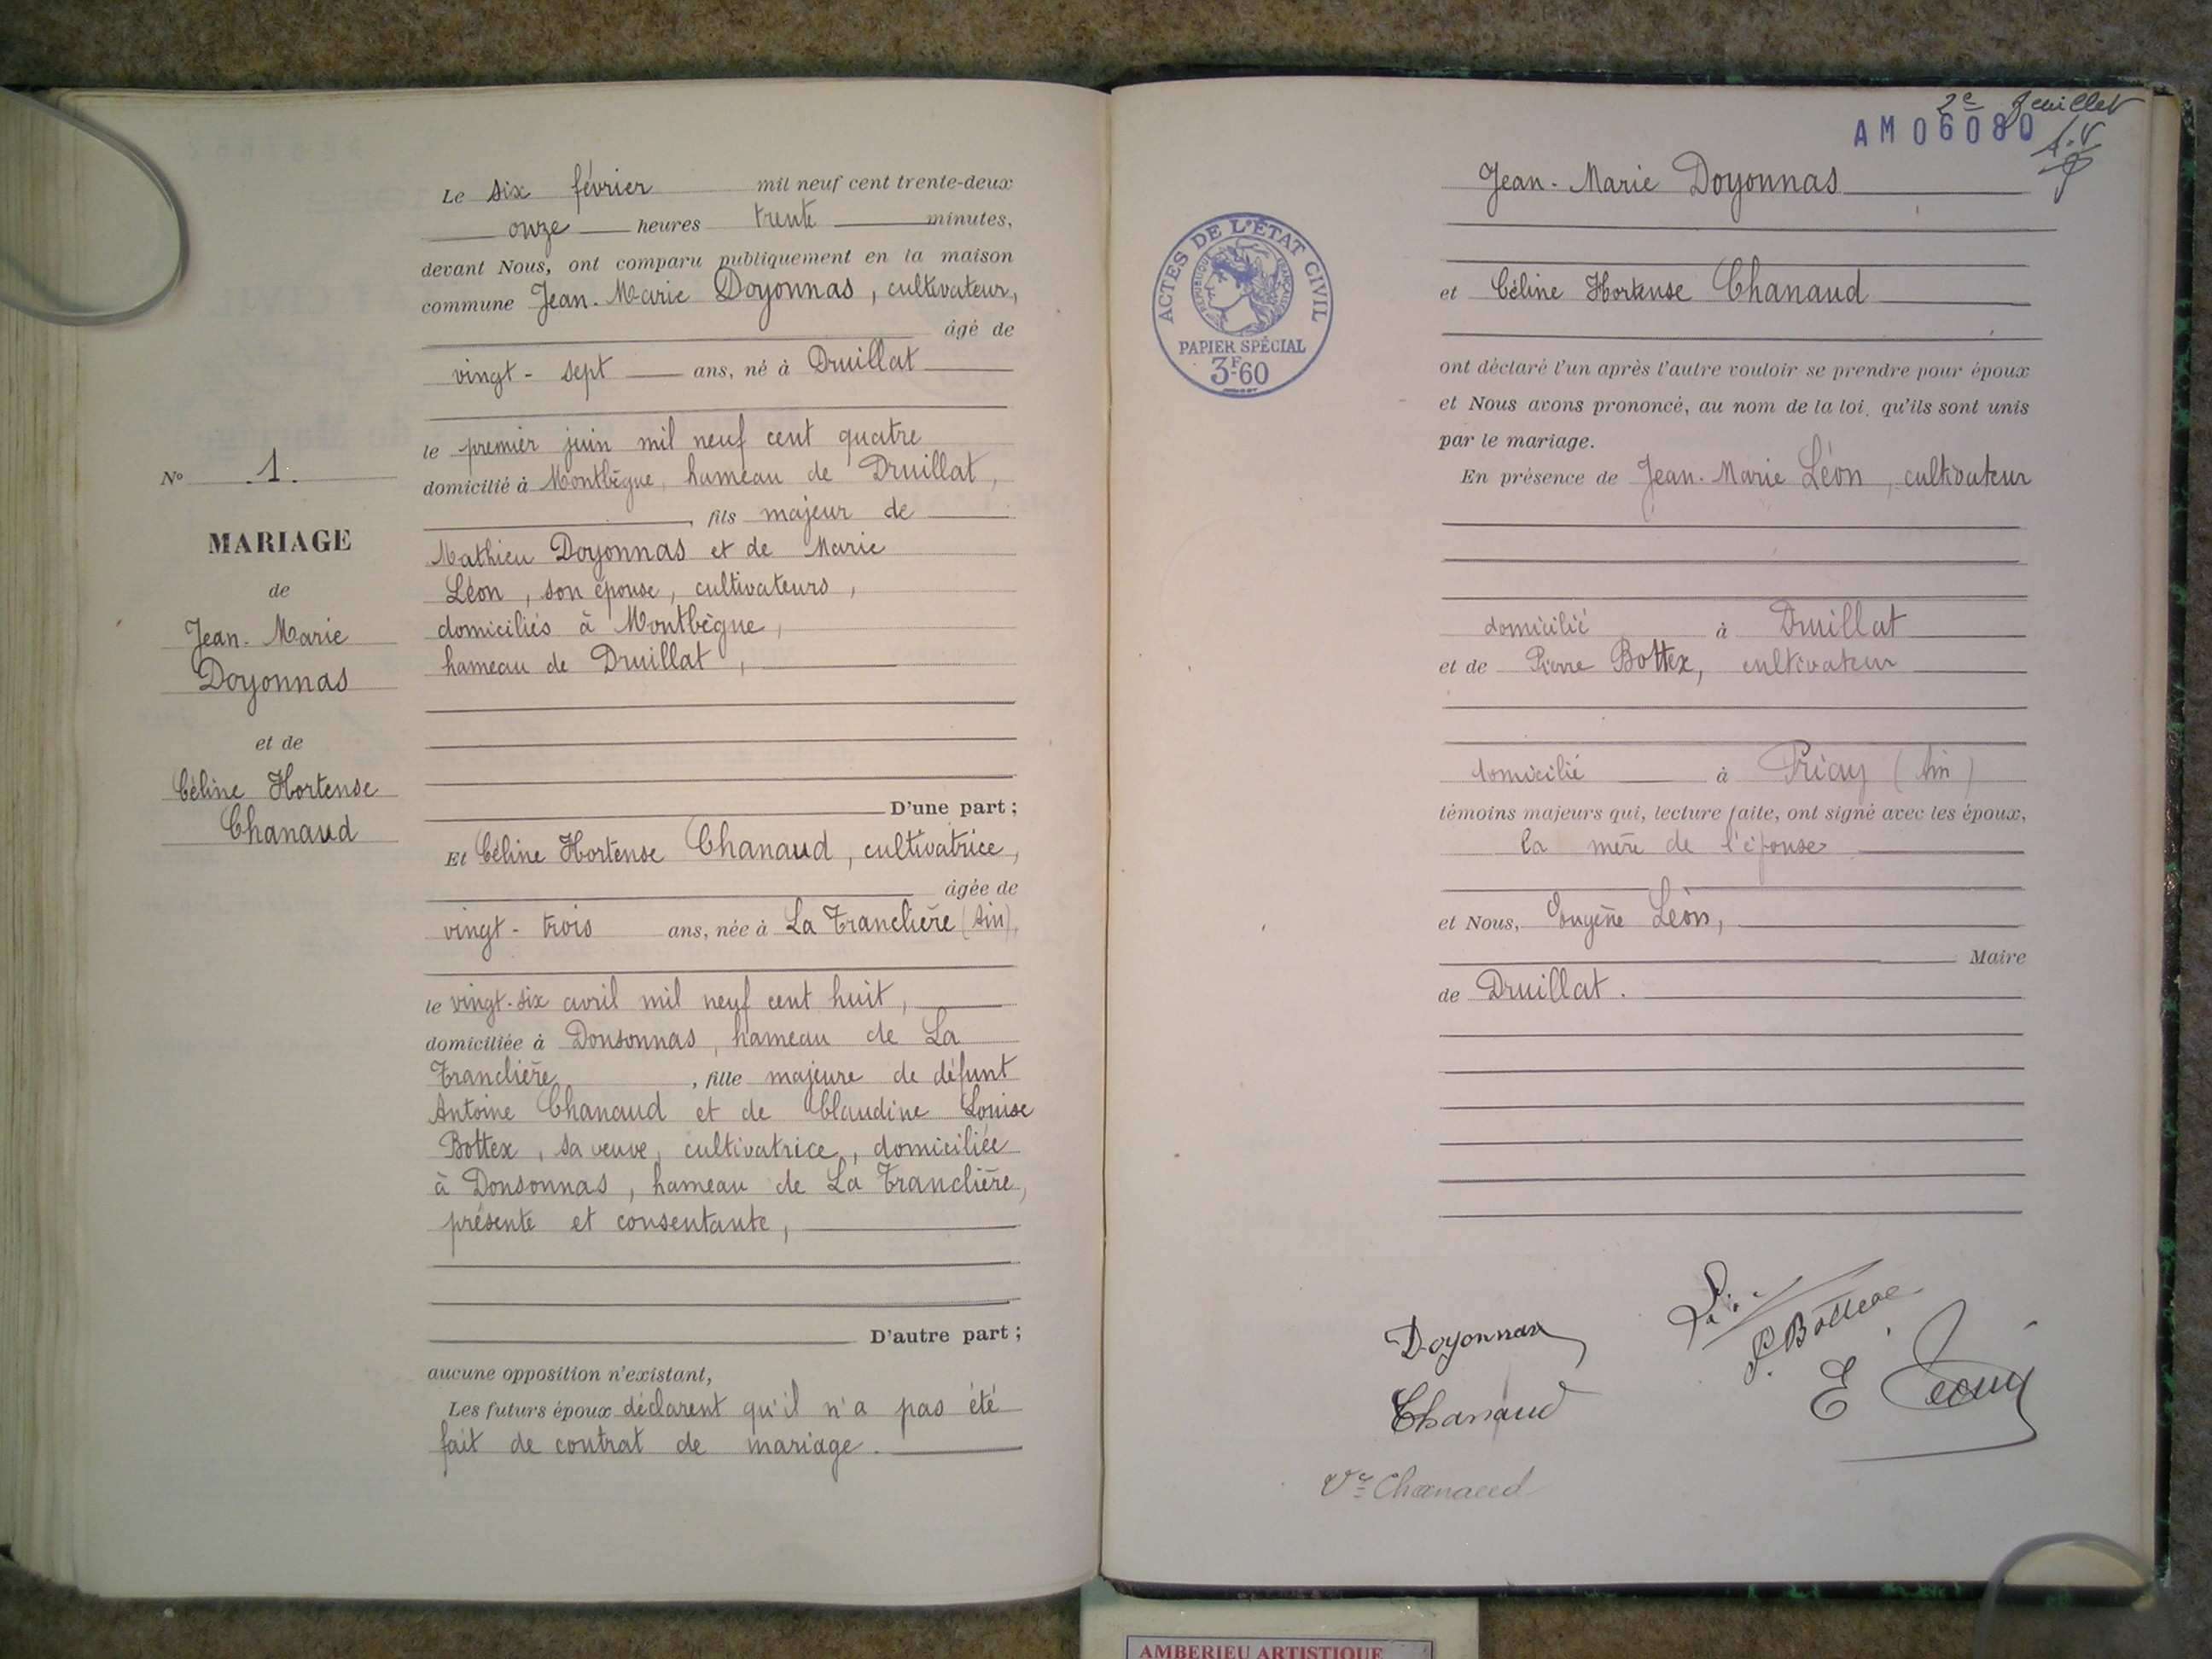 Nº 1.
MARIAGE
de
Jean-Marie
Doyonnas
et de
Céline Hortense
Chanaud
Le six février mil neuf cent trente-deux
onze heures trente minutes,
devant Nous, ont comparu publiquement en la maison
commune Jean-Marie Doyonnas, cultivateur,
âgé de
vingt-sept ans, né à Druillat
le premier juin mil neuf cent quatre
domicilié à Montbègue, hameau de Druillat,
, fils majeur de
Mathieu Doyonnas et de Marie
Léon, son épouse, cultivateurs,
domiciliés à Montbègue,
hameau de Druillat,
D'une part ;
Et Céline Hortense Chanaud, cultivatrice,
âgée de
vingt-trois ans, née à La Tranclière (Ain),
le vingt-six avril mil neuf cent huit,
domiciliée à Donsonnas, hameau de La
Tranclière, fille majeure de défunt
Antoine Chanaud et de Claudine Louise
Bottex, sa veuve, cultivatrice, domiciliée
à Donsonnas, hameau de La Tranclière,
présente et consentante,
D'autre part ;
aucune opposition n'existant,
Les futurs époux déclarent qu'il n'a pas été
fait de contrat de mariage.
2e feuillet
AM 06080
ACTES DE L'ÉTAT CIVIL
RÉPUBLIQUE FRANÇAISE
PAPIER SPÉCIAL
3F60
Jean-Marie Doyonnas
et Céline Hortense Chanaud
ont déclaré l'un après l'autre vouloir se prendre pour époux
et Nous avons prononcé, au nom de la loi, qu'ils sont unis
par le mariage.
En présence de Jean-Marie Léon, cultivateur
domicilié à Druillat
et de Pierre Bottex, cultivateur
domicilié à Priay (Ain)
témoins majeurs qui, lecture faite, ont signé avec les époux,
la mère de l'épouse
et Nous, Eugène Léon,
Maire
de Druillat.
Doyonnax
P. Bottex
Chanaud
E Léon
Vve Chanaud
AMBERIEU ARTISTIQUE